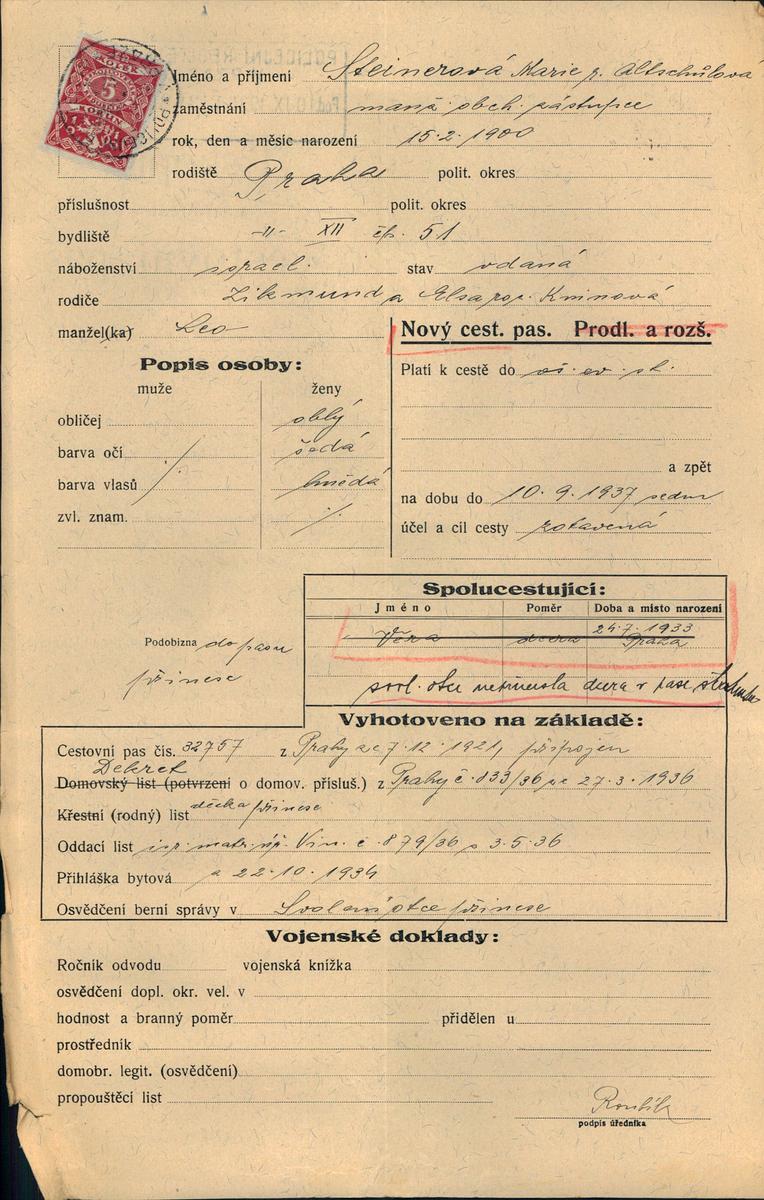 KOLEK
5
KORUN
Jméno a příjmení Steinerová Marie r. Altschulová
zaměstnání manž. obch. zástupce
rok, den a měsíc narození 15.2.1900
rodiště Praha polit. okres
příslušnost polit. okres
bydliště -"- XII čp. 51
náboženství israel. stav vdaná
rodiče Zikmund a Elsa roz. Kninová
manžel(ka) Leo
Nový cest. pas. Prodl. a rozš.
Popis osoby:
muže ženy
Platí k cestě do
obličej oblý
barva očí šedá
barva vlasů hnědá
zvl. znam.
a zpět
na dobu do 10.9.1937
účel a cíl cesty zotavená
Spolucestující:
Jméno Poměr Doba a misto narození
Věra dcera 24.7.1933 Praha
Podobizna do pasu
přinese
Vyhotoveno na základě:
Cestovní pas čís. 32757 z Prahy ze 7.12.1921, připojen
Dekret
Domovský list (potvrzení o domov. přísluš.) z Prahy č. 833/36 ze 27.3.1936
Křestní (rodný) list přinese
Oddací list isr. matr. Vin. č 879/36 z 3.5.36
Přihláška bytová z 22.10.1934
Osvědčení berní správy v Svolení otce přinese
Vojenské doklady:
Ročník odvodu vojenská knížka
osvědčení dopl. okr. vel. v
hodnost a branný poměr přidělen u
prostředník
domobr. legit. (osvědčení)
propouštěcí list
podpis úředníka